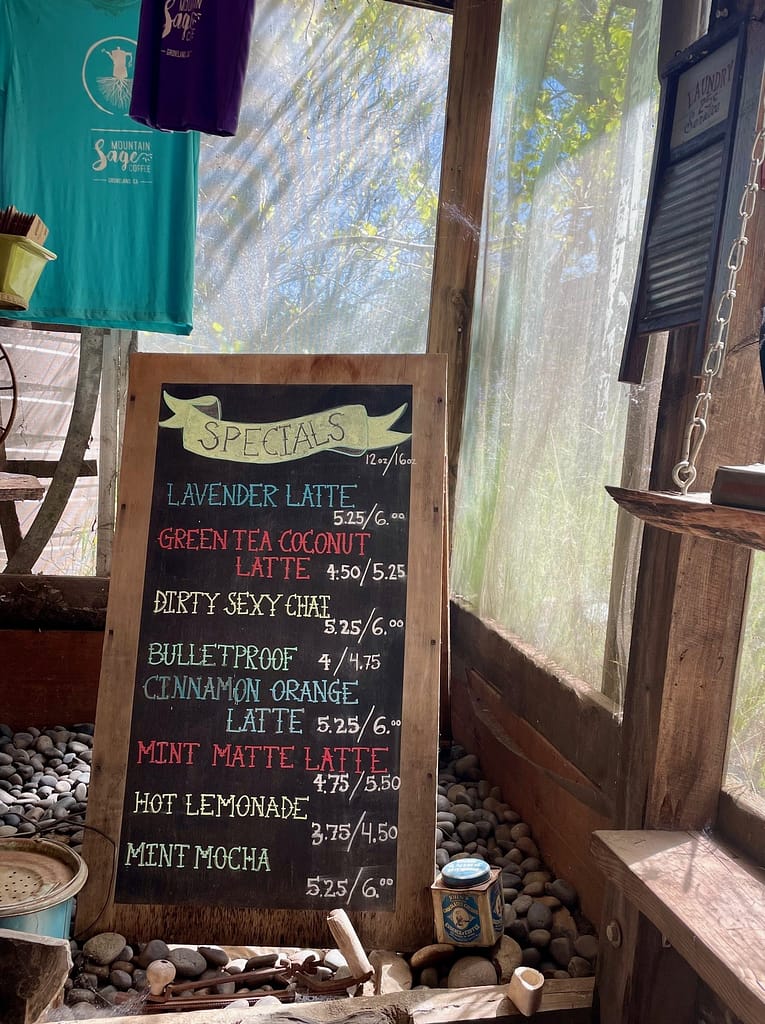 Sage
GROVELAND, CA
MOUNTAIN
Sage
COFFEE
GROVELAND, CA
LAUNDRY
SPECIALS
12oz/16oz
LAVENDER LATTE
5.25/6.00
GREEN TEA COCONUT
LATTE 4.50/5.25
DIRTY SEXY CHAI
5.25/6.00
BULLETPROOF 4/4.75
CINNAMON ORANGE
LATTE 5.25/6.00
MINT MATTE LATTE
4.75/5.50
HOT LEMONADE
3.75/4.50
MINT MOCHA
5.25/6.00